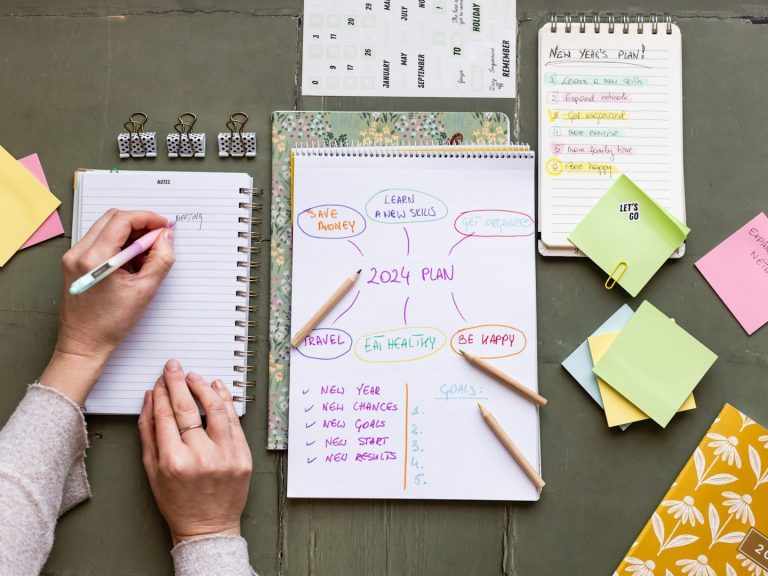 JANUARY
MAY
JULY
SEPTEMBER
TO
HOLIDAY
Day
off
Important
REMEMBER
NEW YEAR'S PLAN!
1 Learn a new skills
2 Expand network
3 Get organized
4 more exercise
5 more family time
6 happy
LET'S
GO
NOTES
MEETING
SAVE
MONEY
LEARN
A NEW SKILLS
GET ORGANIZED
2024 PLAN
TRAVEL
EAT HEALTHY
BE HAPPY
✓ NEW YEAR
✓ NEW CHANCES
✓ NEW GOALS
✓ NEW START
✓ NEW RESULTS
GOALS:
1.
2.
3.
4.
5.
20